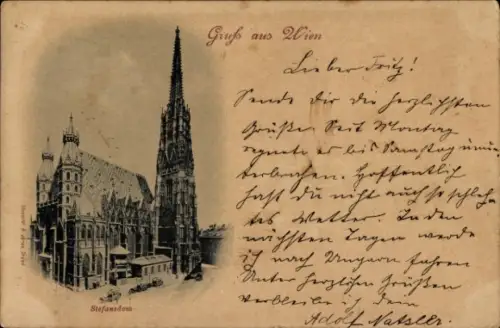 Gruß aus Wien
Lieber Fritz!
Sende Dir die herzlichsten
Grüße. Seit Montag
regnete es bis Samstag unun-
terbrochen. Hoffentlich
hast du nicht auch so schlech-
tes Wetter. In den
nächsten Tagen werde
ich nach Ungarn fahren
Unter herzlichen Grüßen
verbleibe ich dein
Adolf Natzler.
Stefansdom